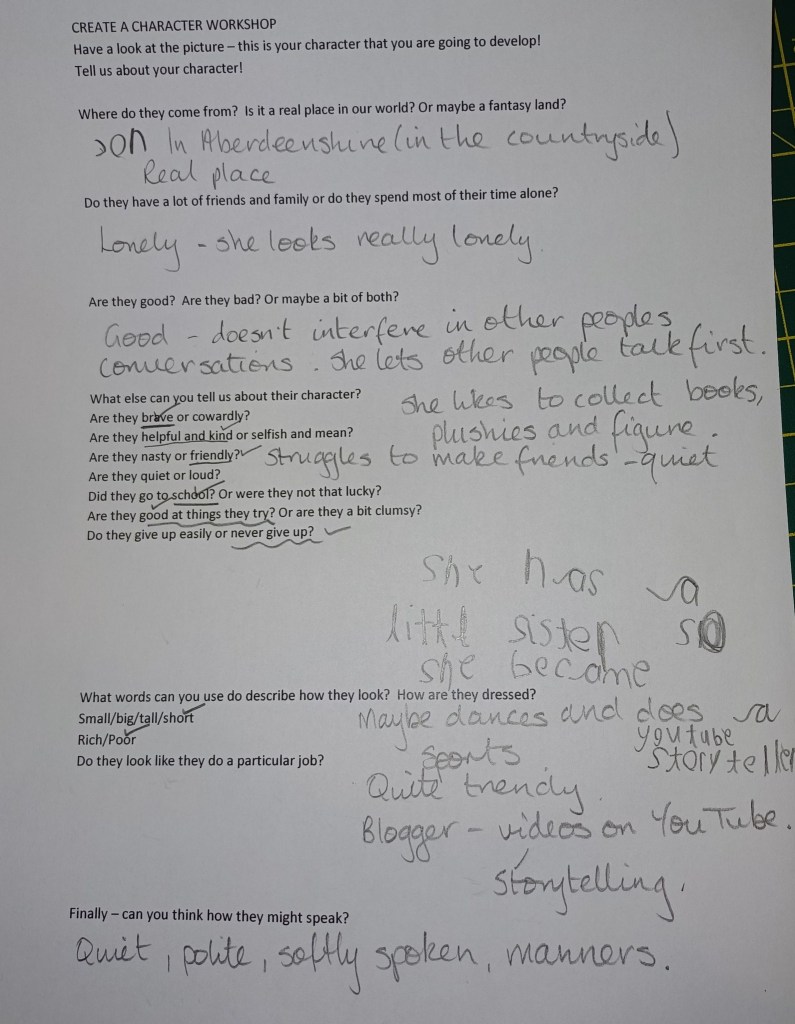 CREATE A CHARACTER WORKSHOP
Have a look at the picture – this is your character that you are going to develop!
Tell us about your character!
Where do they come from?  Is it a real place in our world? Or maybe a fantasy land?
In Aberdeenshire (in the countryside)
Real place
Do they have a lot of friends and family or do they spend most of their time alone?
Lonely - she looks really lonely.
Are they good?  Are they bad? Or maybe a bit of both?
Good - doesn't interfere in other peoples
conversations. She lets other people talk first.
What else can you tell us about their character?
She likes to collect books,
Are they brave or cowardly?
plushies and figure.
Are they helpful and kind or selfish and mean?
Are they nasty or friendly? ✓ Struggles to make friends - quiet
Are they quiet or loud?
Did they go to school? Or were they not that lucky?
Are they good at things they try? Or are they a bit clumsy?
Do they give up easily or never give up? ✓
She has a
littl sister so
she became
a
youtube
storyteller
What words can you use do describe how they look?  How are they dressed?
Small/big/tall/short
Rich/Poor
Do they look like they do a particular job?
Maybe dances and does
sports.
Quite trendy.
Blogger - videos on YouTube.
storytelling.
Finally – can you think how they might speak?
Quiet, polite, softly spoken, manners.